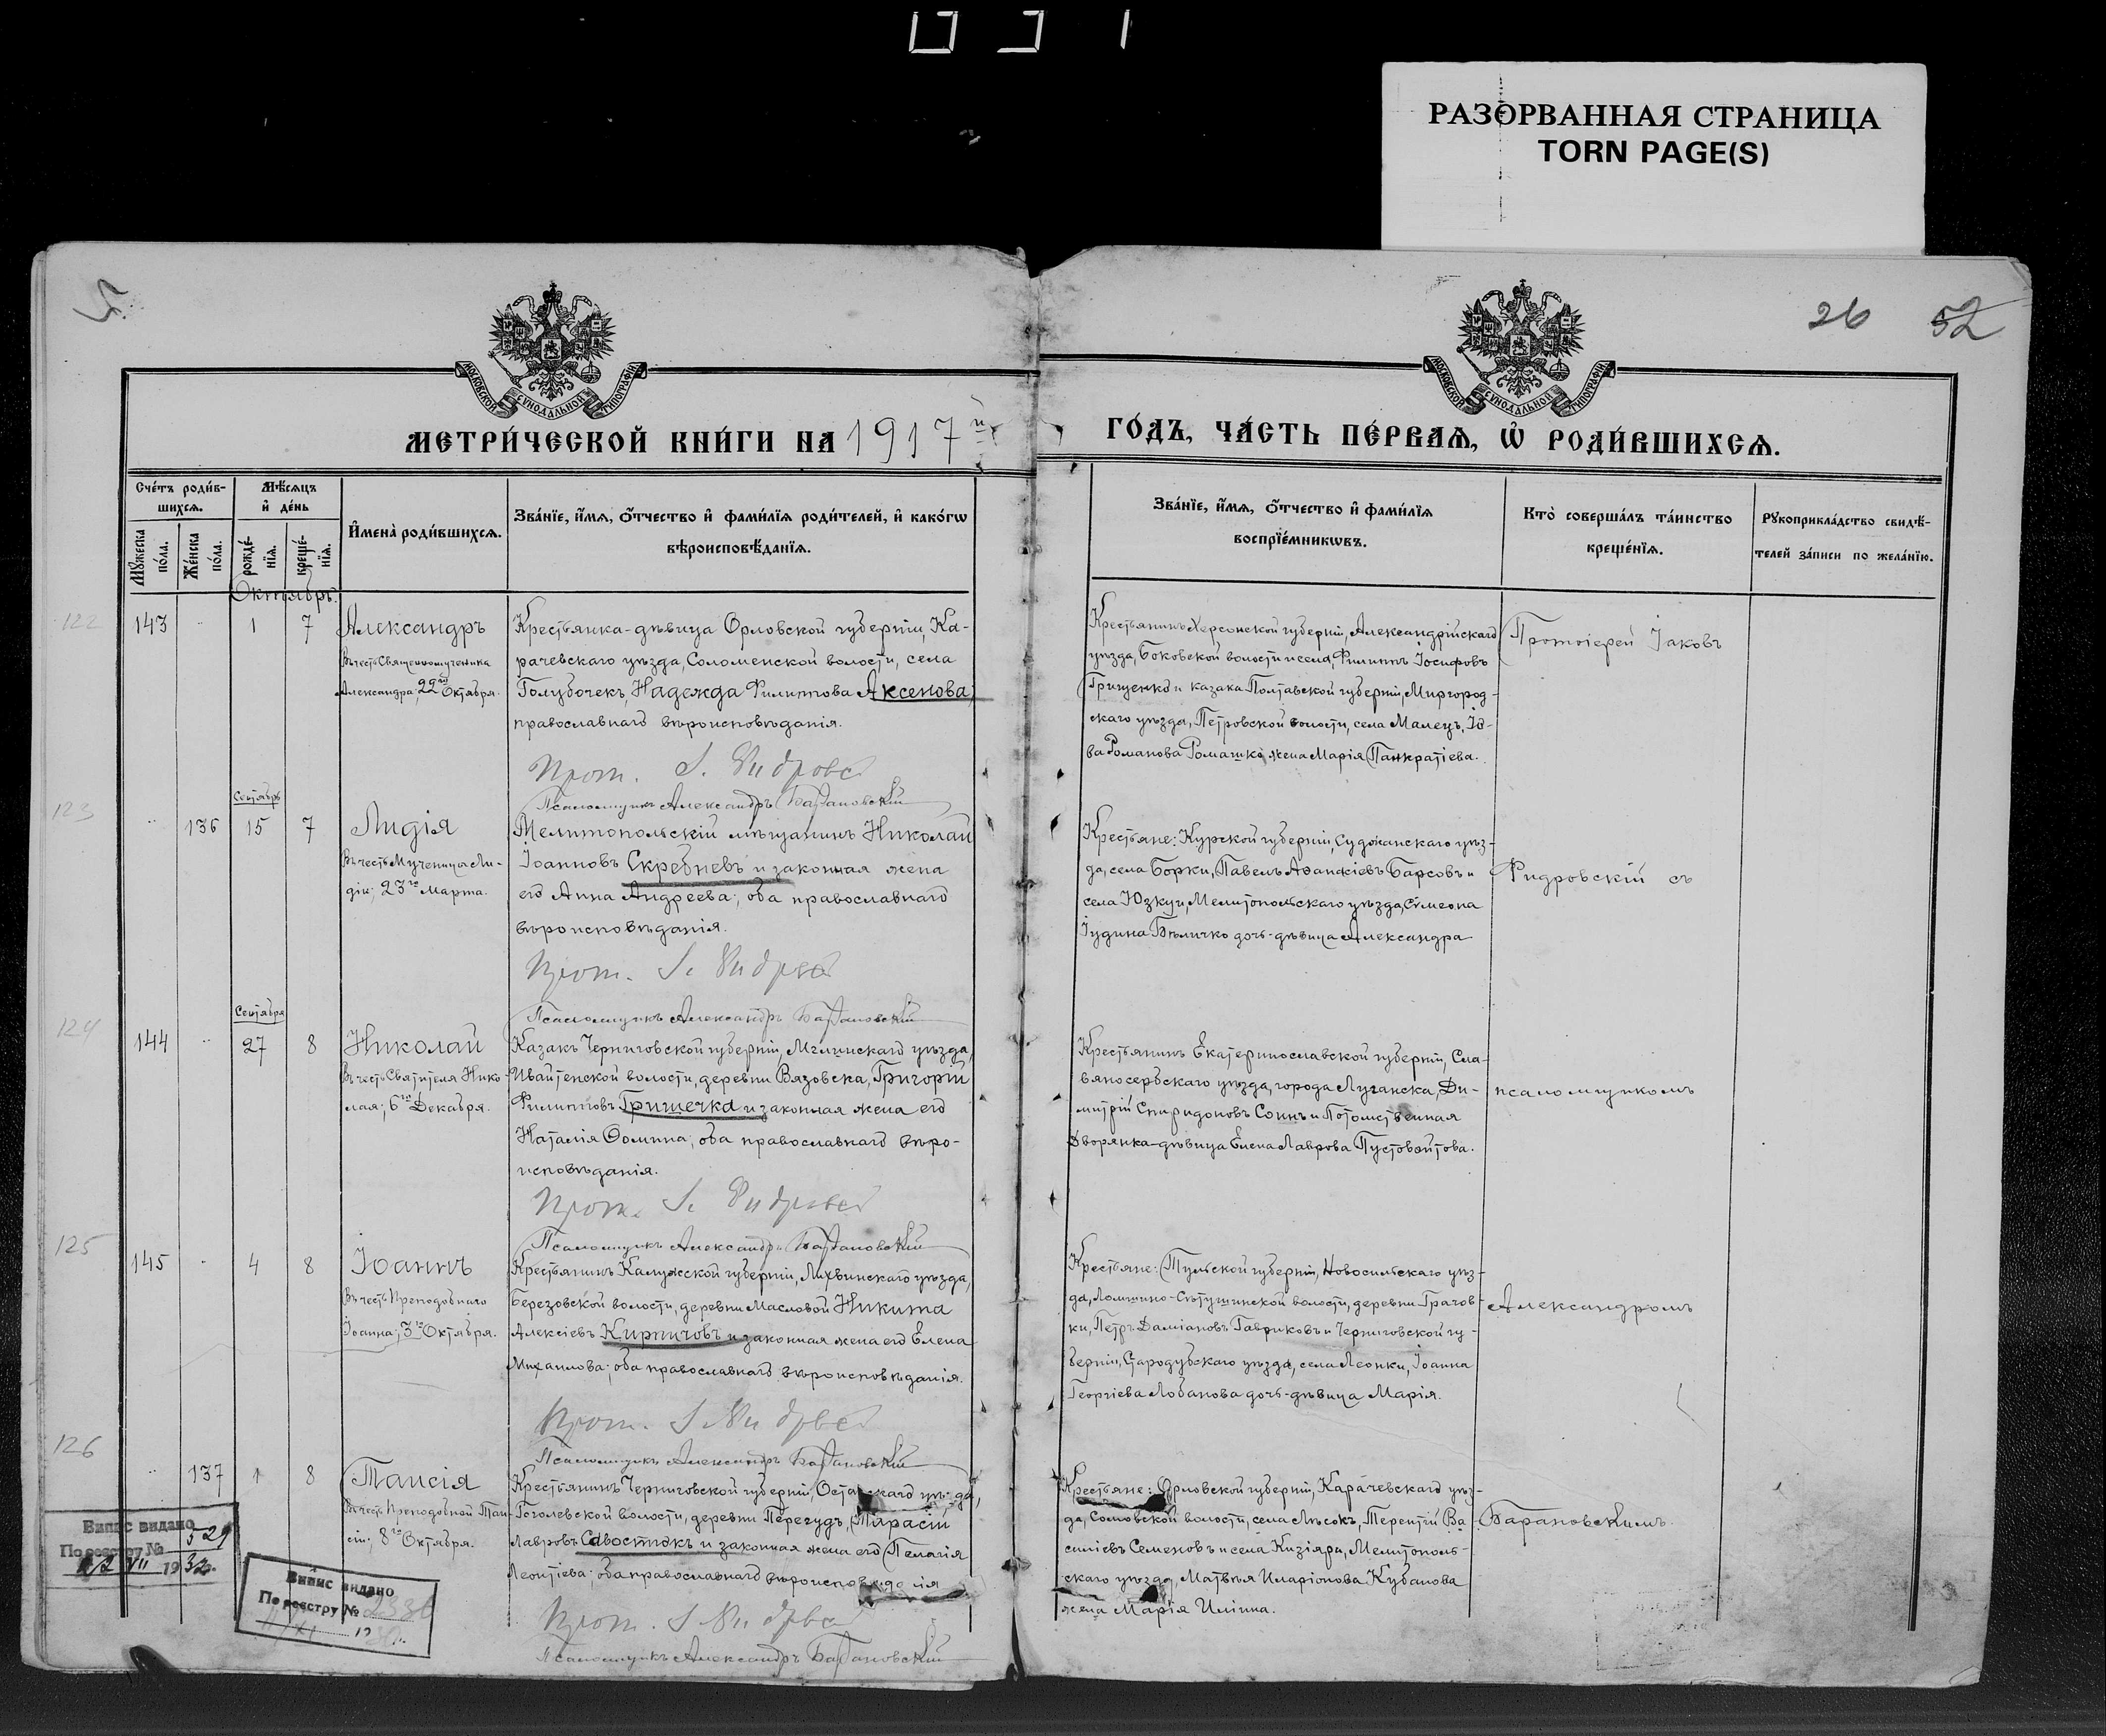 РАЗОРВАННАЯ СТРАНИЦА
TORN PAGE(S)
26 52
МОСКОВСКОЙ СѴНОДАЛЬНОЙ ТИПОГРАФІИ
МОСКОВСКОЙ СѴНОДАЛЬНОЙ ТИПОГРАФІИ
МЕТРИ́ЧЕСКОЙ КНИ́ГИ НА 1917й
ГО́ДЪ, ЧА́СТЬ ПЕ́РВАѦ, Ѡ҆ РОДИ́ВШИХСѦ.
Сче́тъ роди́в-
шихсѧ.
Мѣ́сѧцъ
и҆ де́нь
Мꙋ́жеска
по́ла.
Же́нска
по́ла.
рожде́-
нїѧ.
креще́-
нїѧ.
И҆мена̀ роди́вшихсѧ.
Зва́нїе, и҆́мѧ, ѻ҆́тчество и҆ фами́лїѧ роди́телей, и҆ како́гѡ
вѣроисповѣ́данїѧ.
Зва́нїе, и҆́мѧ, ѻ҆́тчество и҆ фами́лїѧ
воспрїе́мникѡвъ.
Кто̀ соверша́лъ та́инство
креще́нїѧ.
Рꙋкоприкла́дство свидѣ́-
телей за́писи по жела́нїю.
Октябрь.
122
143 " 1 7
Александръ
Въ честь Священномученика
Александра; 22го Октября.
Крестьянка-дѣвица Орловской губерніи, Ка-
рачевскаго уѣзда, Соломенской волости, села
Голубочекъ, Надежда Филиппова Аксенова,
православнаго вѣроисповѣданія.
Прот. І. Фидровскій
Псаломщикъ Александръ Барановскій
Крестьянинъ Херсонской губерніи, Александрійскаго
уѣзда, Боковской волости и села, Филиппъ Іосифовъ
Грищенко и казака Полтавской губерніи, Миргород-
скаго уѣзда, Петровской волости, села Малецъ, Іо-
ва Романова Ромашко жена Марія Панкратіева.
Протоіерей Іаковъ
123
Сентябрь
" 136 15 7
Лидія
Въ честь Мученицы Ли-
діи; 23го Марта.
Мелитопольскій мѣщанинъ Николай
Іоанновъ Скребневъ и законная жена
его Анна Андреева; оба православнаго
вѣроисповѣданія.
Прот. І. Фидровскій
Псаломщикъ Александръ Барановскій
Крестьяне: Курской губерніи, Суджанскаго уѣз-
да, села Борки, Павелъ Аѳанасіевъ Барсовъ и
села Юзкуи, Мелитопольскаго уѣзда, Сѵмеона
Іудина Бѣличко дочь-дѣвица Александра
Фидровскій съ
124
Сентября
144 " 27 8
Николай
Въ честь Святителя Нико-
лая; 6го Декабря.
Казакъ Черниговской губерніи, Мглинскаго уѣзда,
Ивайтенской волости, деревни Вязовска, Григорій
Филипповъ Гришечка и законная жена его
Наталія Ѳомина; оба православнаго вѣро-
исповѣданія.
Прот. І. Фидровскій
Псаломщикъ Александръ Барановскій
Крестьянинъ Екатеринославской губерніи, Сла-
вяносербскаго уѣзда, города Луганска, Ди-
митрій Спиридоновъ Соинъ и Потомственная
Дворянка-дѣвица Елена Лаврова Пустовойтова.
псаломщикомъ
125
145 " 4 8
Іоаннъ
Въ честь Преподобнаго
Іоанна; 3го Октября.
Крестьянинъ Калужской губерніи, Лихвинскаго уѣзда,
Березовской волости, деревни Масловой Никита
Алексіевъ Кирпичовъ и законная жена его Елена
Михаилова; оба православнаго вѣроисповѣданія.
Прот. І. Фидровскій
Псаломщикъ Александръ Барановскій
Крестьяне: Тульской губерніи, Новосильскаго уѣз-
да, Ломшино-Сѣтушинской волости, деревни Грачов-
ки, Петръ Даміановъ Гавриковъ и Черниговской гу-
берніи, Стародубскаго уѣзда, села Леонки, Іоанна
Георгіева Лобанова дочь-дѣвица Марія.
Александромъ
126
" 137 1 8
Таисія
Въ честь Преподобной Таи-
сіи; 8го Октября.
Крестьянинъ Черниговской губерніи, Остерскаго уѣзда,
Гоголевской волости, деревни Перегудъ, Тарасій
Лавровъ Савостокъ и законная жена его Пелагія
Леонтіева; оба православнаго вѣроисповѣданія
Прот. І. Фидровскій
Псаломщикъ Александръ Барановскій
Крестьяне: Орловской губерніи, Карачевскаго уѣз-
да, Соловской волости, села Лѣсокъ, Терентій Ва-
силіевъ Семеновъ и села Кизіяра, Мелитополь-
скаго уѣзда, Матвѣя Иларіонова Кубанова
жена Марія Иліина.
Барановскимъ.
Випис видано
По реєстру № 529
22 VII 1932.
Випис видано
По реєстру № 2336